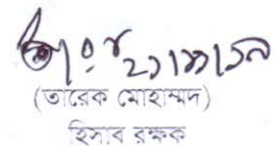 (তারেক মোহাম্মদ)
হিসাব রক্ষক